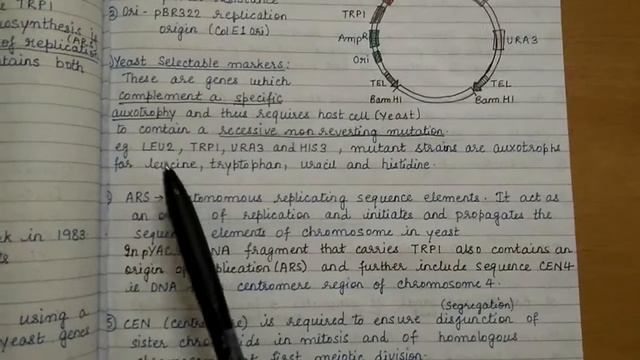 TRP1
osynthesis is
of replication
(ARS)
tains both
k in 1983
using a
yeast genes
③ Ori - pBR322 replication
origin (ColE1 ori)
Yeast Selectable markers:
These are genes which
complement a specific
auxotrophy and thus requires host cell (yeast)
to contain a recessive non reverting mutation.
eg LEU2, TRP1, URA3 and HIS3, mutant strains are auxotrophs
for leucine, tryptophan, uracil and histidine.
ARS → autonomous replicating sequence elements. It act as
an of replication and initiates and propagates the
elements of chromosome in yeast
In pYAC DNA fragment that carries TRP1 also contains an
origin of replication (ARS) and further include sequence CEN4
ie DNA centromere region of chromosome 4.
(segregation)
5) CEN is required to ensure disjunction of
sister in mitosis and of homologous
first meiotic division.
TRP1
AmpR
Ori
TEL
BamHI
URA3
TEL
BamHI